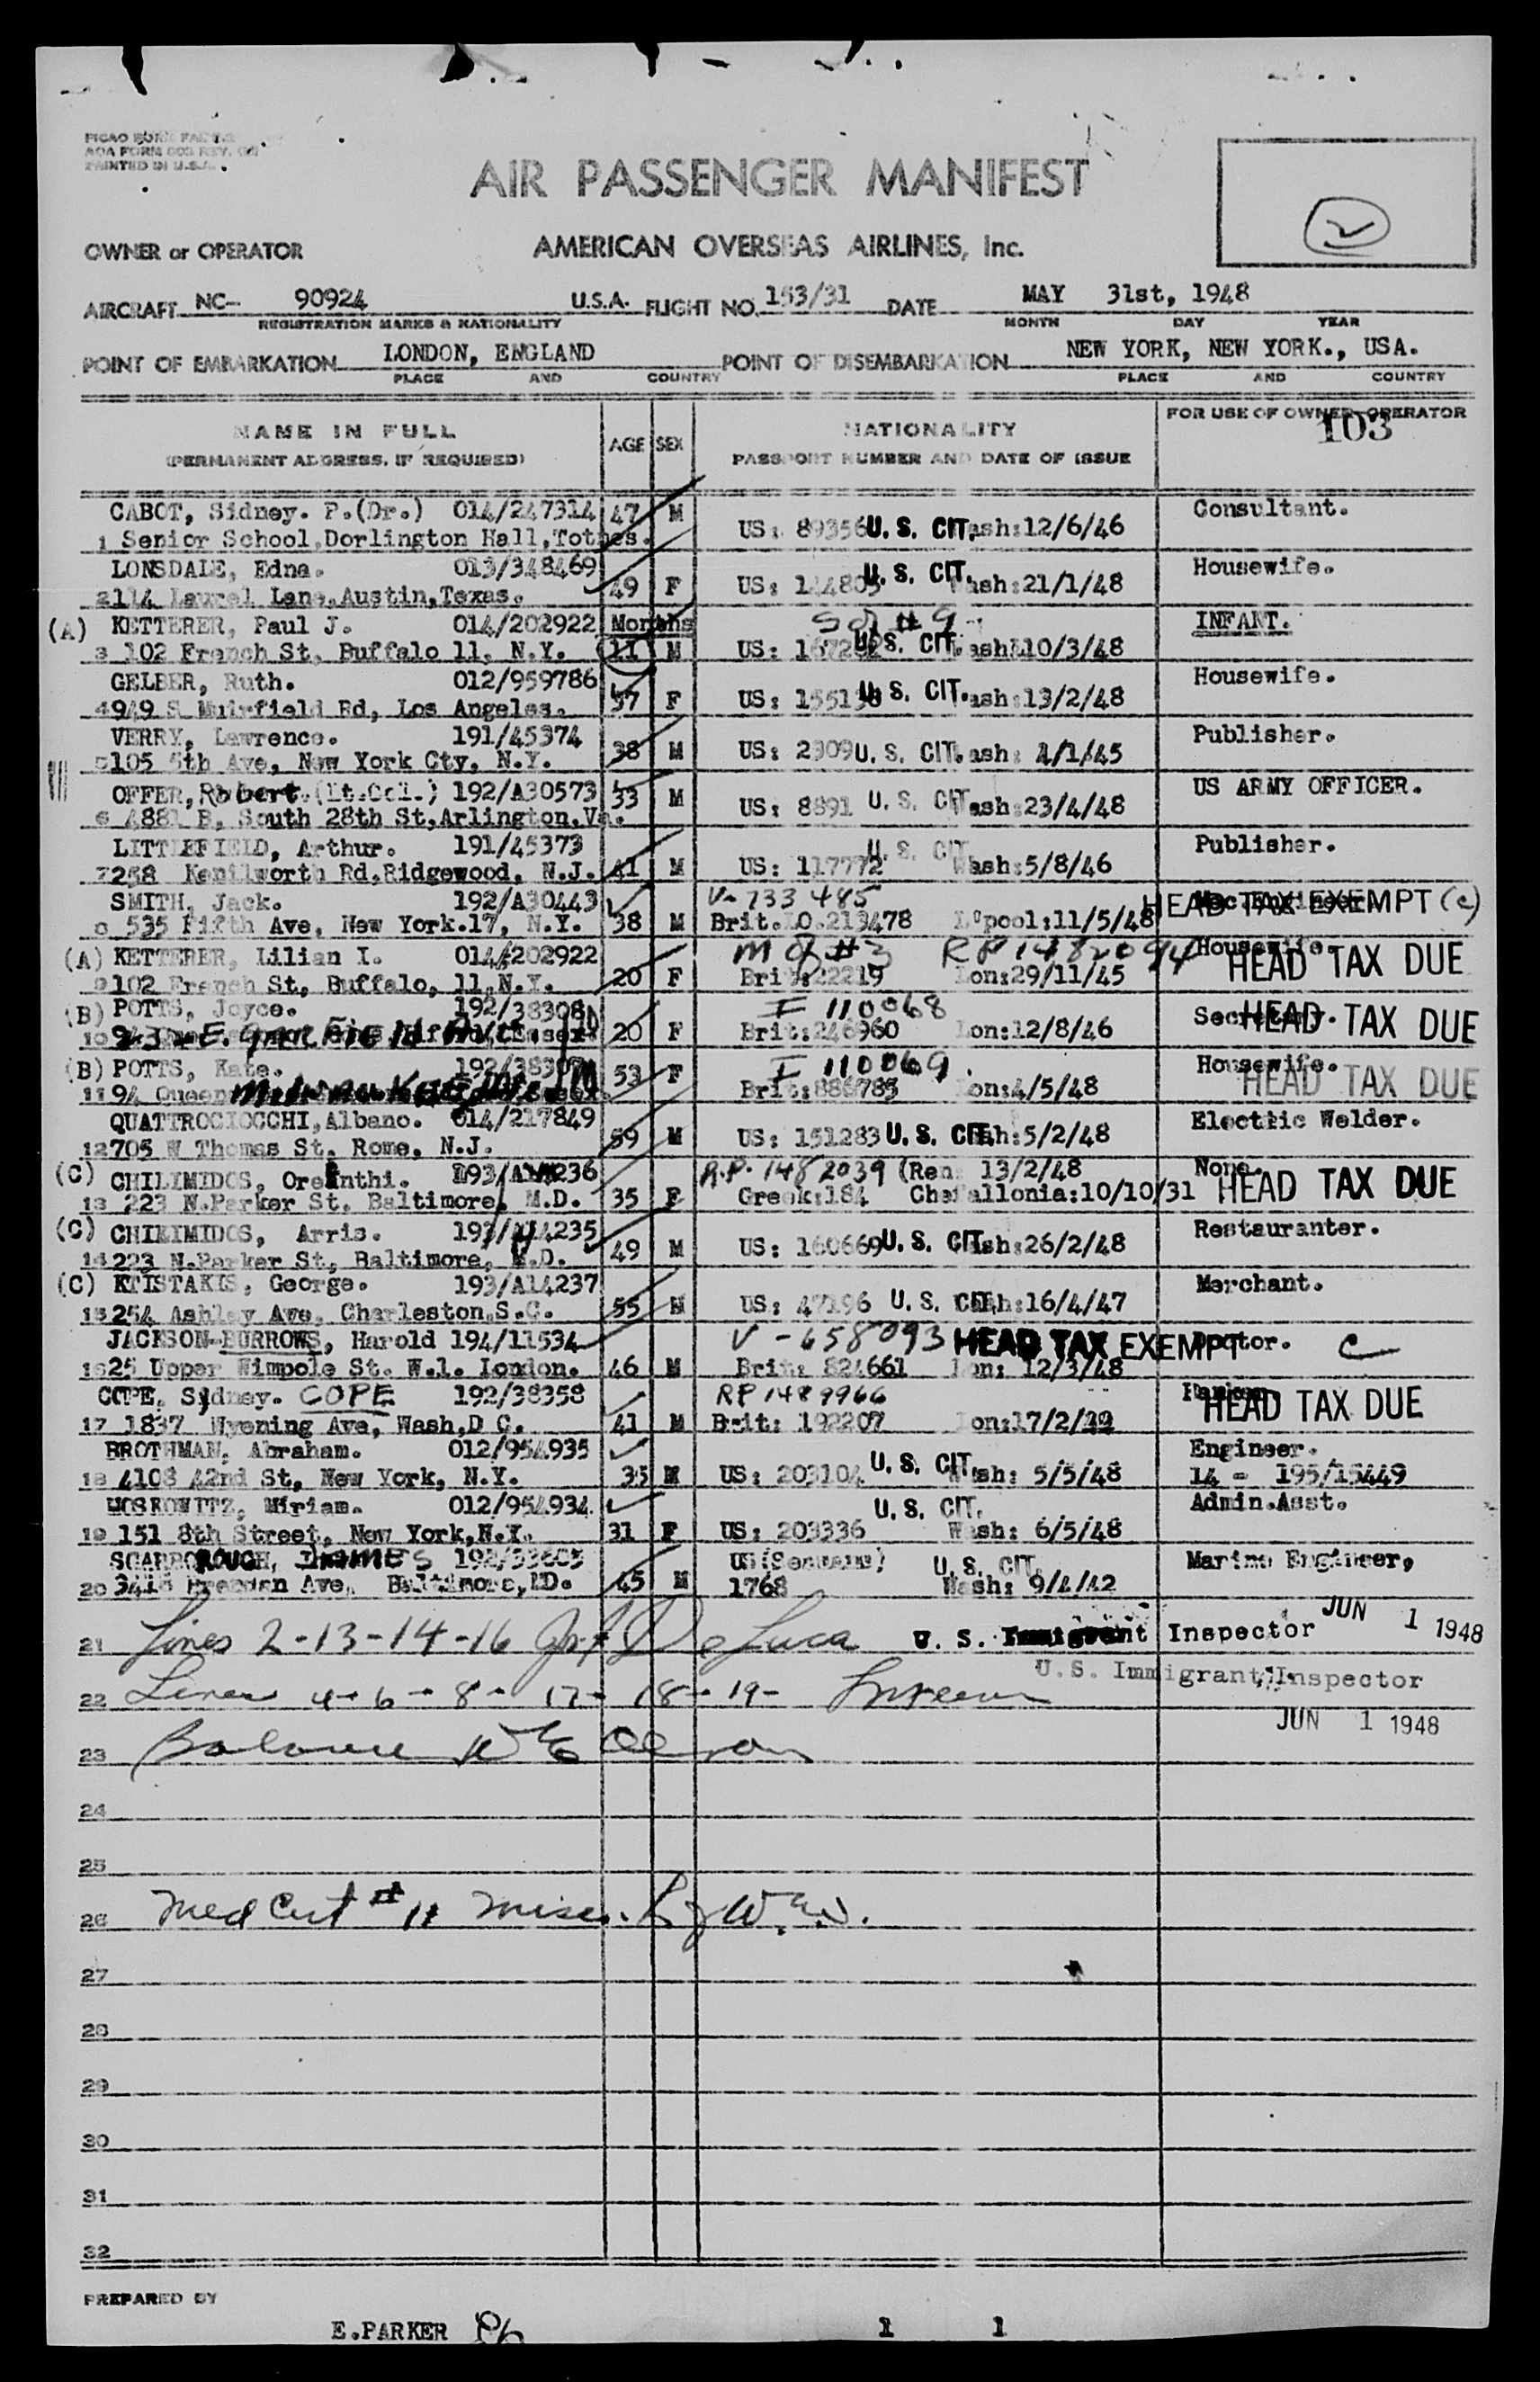 PICAO
AOA FORM
PRINTED IN U.S.A.
AIR PASSENGER MANIFEST
2
OWNER or OPERATOR AMERICAN OVERSEAS AIRLINES, Inc.
AIRCRAFT NC- 90924 U.S.A. FLIGHT NO. 153/31 DATE MAY 31st, 1948
REGISTRATION MARKS & NATIONALITY MONTH DAY YEAR
POINT OF EMBARKATION LONDON, ENGLAND POINT OF DISEMBARKATION NEW YORK, NEW YORK., USA.
PLACE AND COUNTRY PLACE AND COUNTRY
NAME IN FULL AGE SEX NATIONALITY FOR USE OF OWNER-OPERATOR
(PERMANENT ADDRESS, IF REQUIRED) PASSPORT NUMBER AND DATE OF ISSUE 103
CABOT, Sidney. P.(Dr.) 014/247314 47 M Consultant.
1 Senior School,Dorlington Hall,Totnes. US: 89356 U. S. CIT. ash:12/6/46
LONSDALE, Edna. 013/348469 Housewife.
2114 Laurel Lane,Austin,Texas. 49 F US: U. S. CIT. ash:21/1/48
(A) KETTERER, Paul J. 014/202922 Months INFANT.
3 102 French St, Buffalo 11, N.Y. 11 M US: U. S. CIT. ash:10/3/48
GELBER, Ruth. 012/959786 Housewife.
4949 S Muirfield Rd, Los Angeles. 57 F US: U. S. CIT. ash:13/2/48
VERRY, Lawrence. 191/45374 Publisher.
5105 5th Ave, New York Cty, N.Y. 38 M US: 2909 U. S. CIT. ash: 4/1/45
OFFER, Robert.(Lt.Col.) 192/A30573 33 M US ARMY OFFICER.
6 4881 B, South 28th St,Arlington,Va. US: 8891 U. S. CIT. ash:23/4/48
LITTLEFIELD, Arthur. 191/45373 U. S. CIT Publisher.
7258 Kenilworth Rd,Ridgewood, N.J. 41 M US: 117772 Wash:5/8/46
SMITH, Jack. 192/A30443 V-733 485 HEAD TAX EXEMPT (c)
8 535 Fifth Ave, New York.17, N.Y. 38 M Brit.LO.213478 L'pool:11/5/48
(A) KETTERER, Lilian I. 014/202922 RP 1482094 Housewife. HEAD TAX DUE
9102 French St, Buffalo, 11,N.Y. 20 F Brit:22219 Lon:29/11/45
(B) POTTS, Joyce. 192/38308 I 110068 Secretary. HEAD TAX DUE
10 20 F Brit:246960 Lon:12/8/46
(B) POTTS, Kate. I 110069 Housewife. HEAD TAX DUE
1194 Queen 53 F Brit:886785 Lon:4/5/48
QUATTROCIOCCHI,Albano. 014/217849 Electric Welder.
12705 W Thomas St, Rome, N.J. 59 M US: 151283 U. S. CIT. h:5/2/48
(C) CHILIMIDOS, R.P. 1482039 (Ren 13/2/48 None. HEAD TAX DUE
13 223 N.Parker St, Baltimore, M.D. 35 F Greek:184 Chefallonia:10/10/31
(C) CHILIMIDOS, Arris. Restauranter.
14223 N.Parker St, Baltimore, M.D. 49 M US: 160669 U. S. CIT. sh:26/2/48
(C) KTISTAKIS, George. 193/A14237 Merchant.
15254 Ashley Ave, Charleston,S.C. 55 M US: 47196 U. S. CIT. h:16/4/47
JACKSON-BURROWS, Harold 194/11534 V-658093 HEAD TAX EXEMPT Doctor. C
1625 Upper Wimpole St. W.1. London. 46 M Brit: 824661 Lon: 12/3/48
COPE, Sydney. COPE 192/38358 RP 1489966 HEAD TAX DUE
17 1837 Wyoming Ave, Wash,D C. 41 M Brit: 192207 Lon:17/2/
BROTHMAN, Abraham. 012/954935 Engineer.
18 4108 42nd St, New York, N.Y. 35 M US: 203104 U. S. CIT. sh: 5/5/48 14 - 195/15449
MOSKOWITZ, Miriam. 012/954934 U. S. CIT. Admin.Asst.
19 151 8th Street, New York,N.Y. 31 F US: 203336 Wash: 6/5/48
SCARBOROUGH, James US (Seaman) U. S. CIT. Marine Engineer,
20 Ave, Baltimore,MD. 45 M 1768 Wash: 9/4/42
21 Lines 2-13-14-16 De Luca U. S. Immigrant Inspector JUN 1 1948
U.S. Immigrant Inspector
22 Lines 4-6-8-17-18-19-
JUN 1 1948
23 Balance
24
25
26 Med Cert # 11
27
28
29
30
31
32
PREPARED BY
E.PARKER 1 1